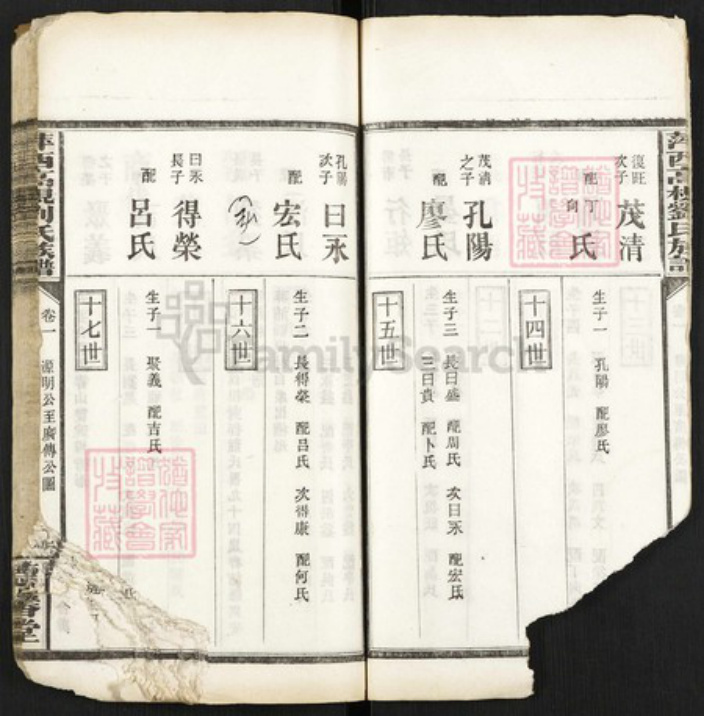 萍西高梘劉氏族譜
復旺次子 茂清
配丁氏
向
生子一 孔陽 配廖氏
十四世
茂清之子 孔陽
配廖氏
生子三 長曰盛 配周氏 次曰永 配宏氏
三曰貴 配卜氏
十五世
孔陽次子 曰永
配宏氏
生子二 長得榮 配呂氏 次得康 配何氏
十六世
曰永長子 得榮
配呂氏
生子一 聚義 配吉氏
十七世
萍西高梘劉氏族譜
卷一 源明公至廣傳公圖
FamilySearch